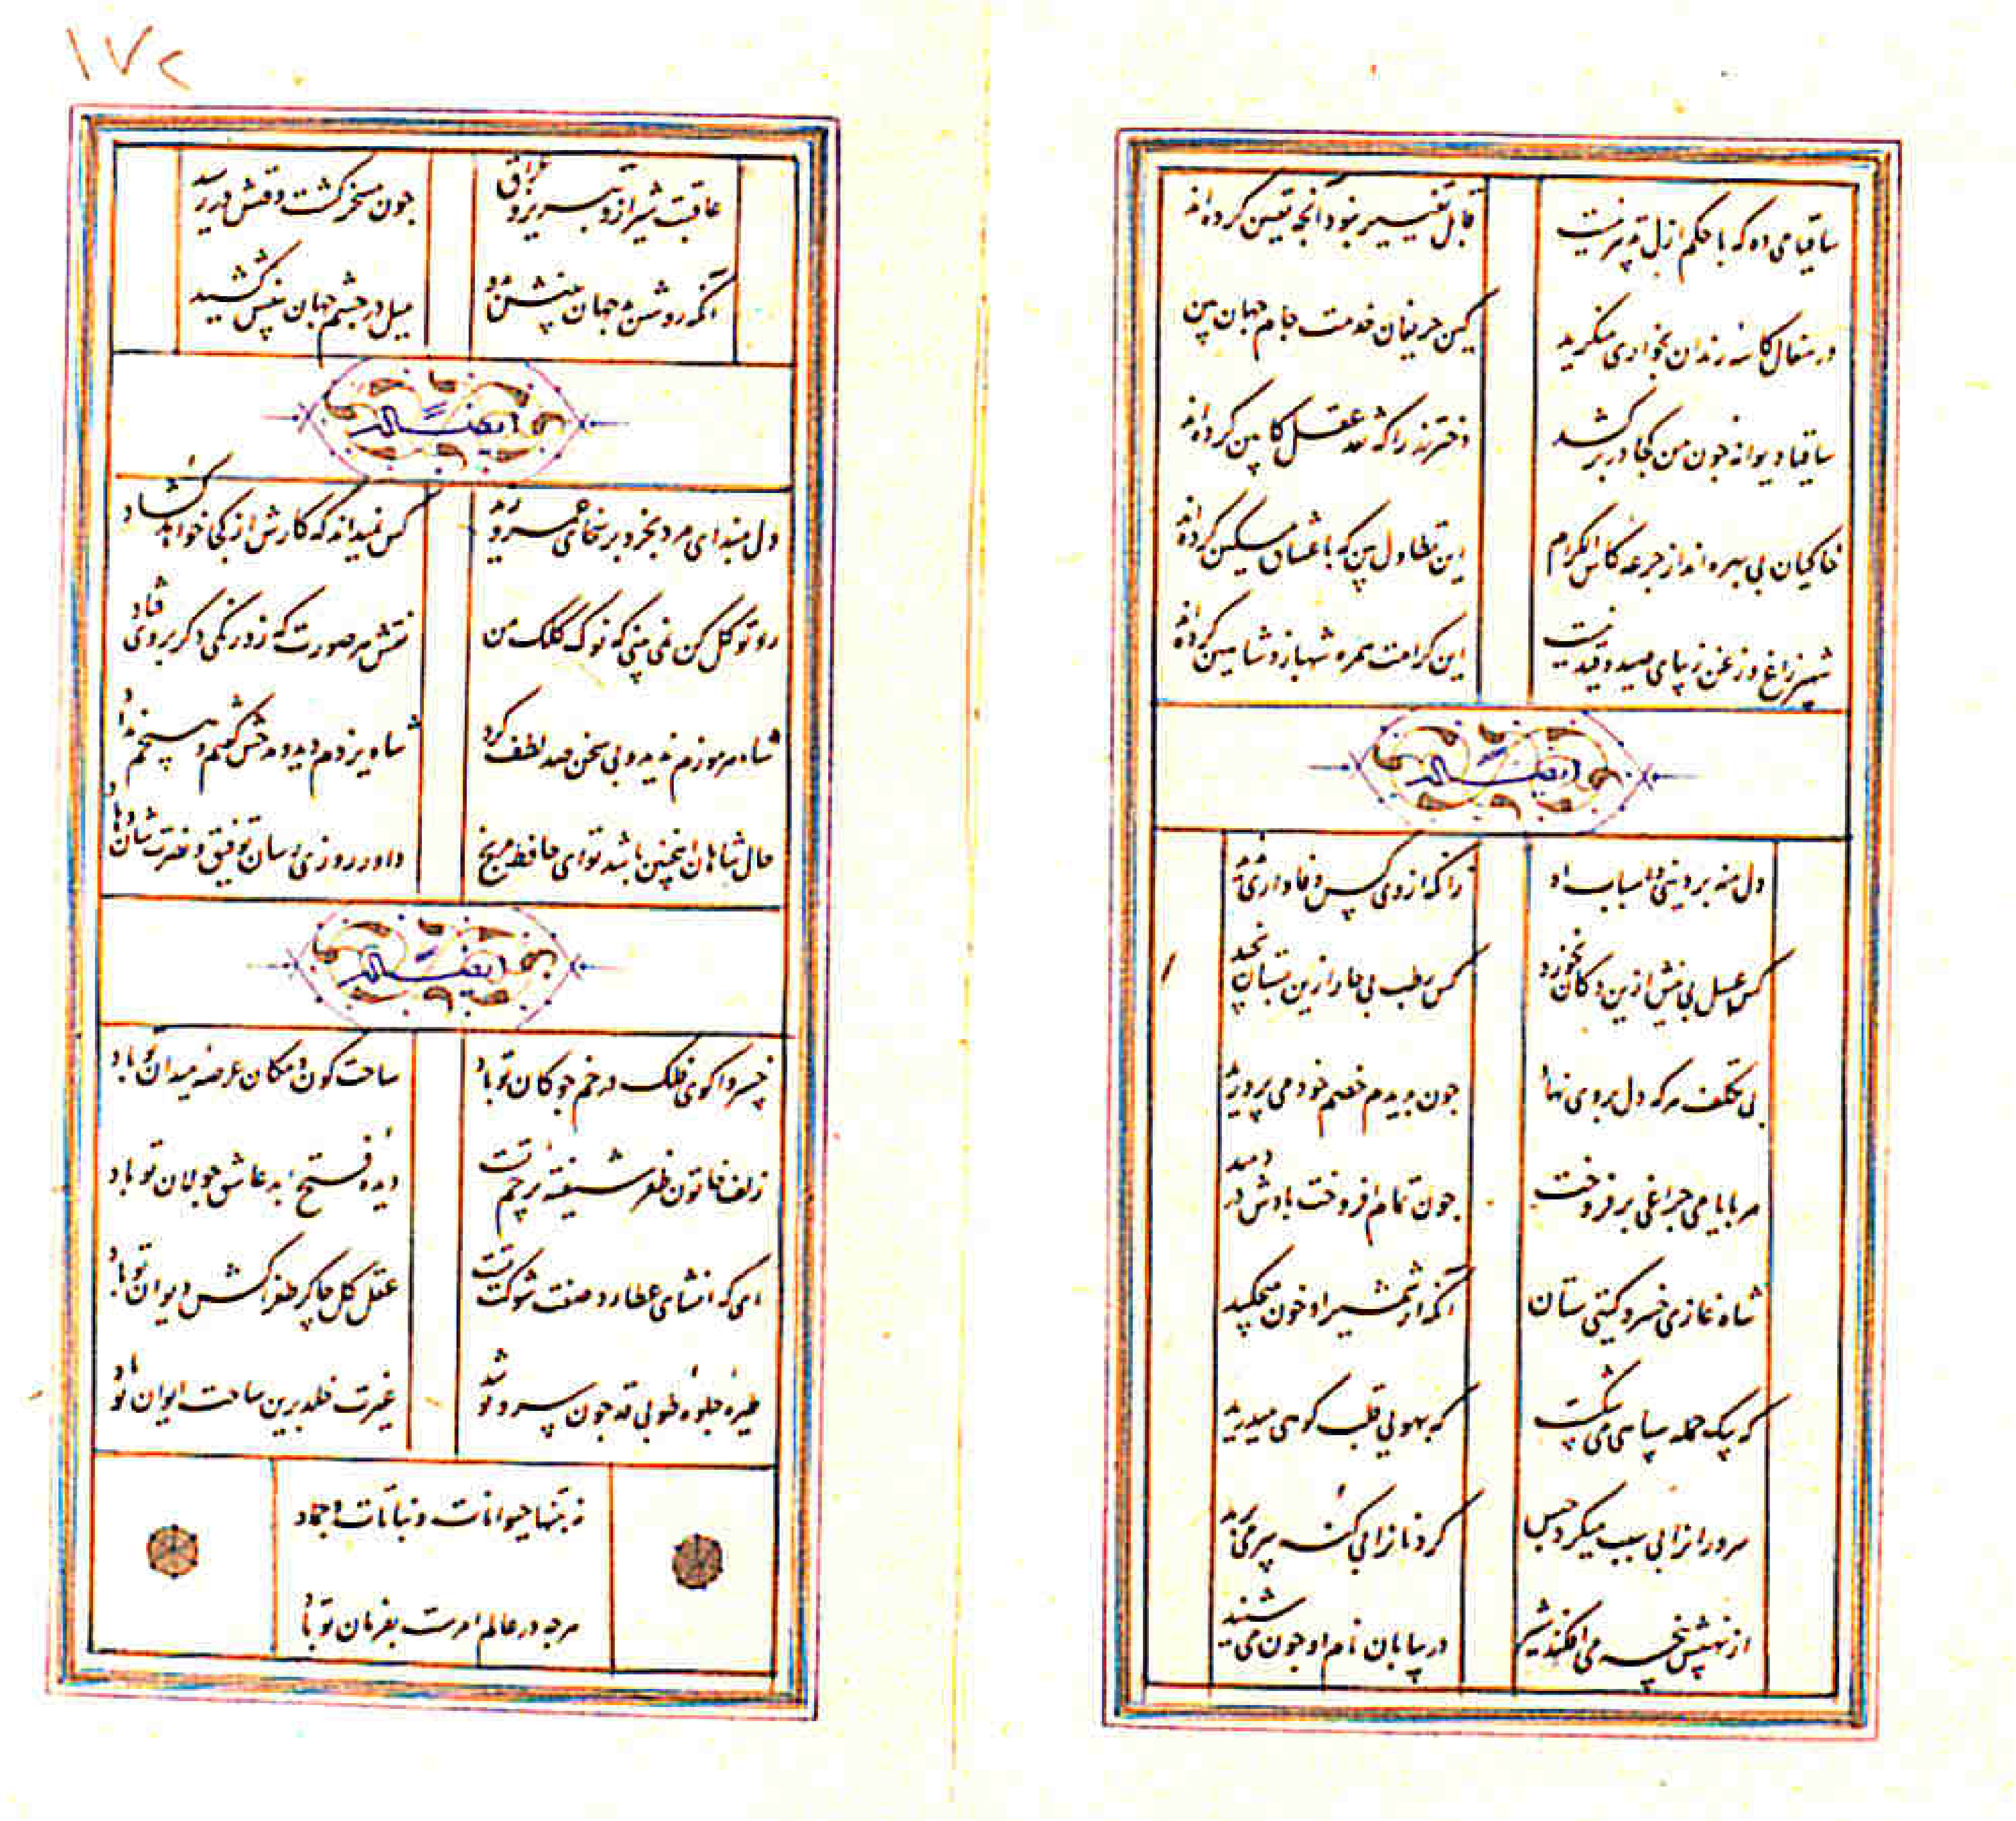 ساقیا می ده که با حکم ازل تدبیر نیست
قابل تغییر نبود آنچه تعیین کرده اند
در سفال کاسه رندان بخواری منگرید
کین حریفان خدمت جام جهان بین
ساقیا دیوانه چون من کجا در بر کشد
دختر رز را که نقد عقل کابین کرده اند
خاکیان بی بهره اند از جرعه کاس الکرام
این تطاول بین که با عشاق مسکین کرده اند
شهپر زاغ و زغن زیبای صید و قید نیست
این کرامت همره شهباز و شاهین کرده اند
ایضا له
دل منه بر دینی و اسباب او
زانکه از وی کس وفاداری ندید
کس عسل بی نیش ازین دکان نخورد
کس رطب بی خار ازین بستان نچید
بی تکلف هر که دل بروی نهاد
چون بدیدم خصم خود می پرورید
هر بایامی چراغی بر فروخت
چون تمام افروخت بادش در دمید
شاه غازی خسرو گیتی ستان
آنکه از شمشیر او خون میچکید
که بیک حمله سپاهی می شکست
که بهویی قلب کوهی میدرید
سرورانرا بی سبب میکرد حبس
کردنانرا بی کنه سر می برید
از نهیبش پنجه می افکند شیر
در بیابان نام او چون می شنید
۱۷۲
عاقبت شیراز و تبریز و عراق
چون مسخر کشت وقتش در رسید
آنکه روشن بد جهان بینش بدو
میل در چشم جهان بینش کشید
ایضا له
دل مبند ای مرد بخرد بر سخای عمرو و زید
کس نمیداند که کارش از کجا خواهد کشاد
رو توکل کن نمی بینی که نوک کلک من
نقش هر صورت که زد رنگی دکر بروی فتاد
شاه هرموزم ندید و بی سخن صد لطف کرد
شاه یزدم دید و مدحش کفتم و هیچم نداد
حال شاهان اینچنین باشد تو ای حافظ مرنج
داور روزی رسان توفیق و نصرت شان دهاد
ایضا له
خسروا کوی فلک در خم چوکان تو باد
ساحت کون و مکان عرصه میدان تو باد
زلف خاتون ظفر شیفته پرچم تست
دیده فتح ابد عاشق جولان تو باد
ای که انشای عطارد صفت شوکت تست
عقل کل چاکر طغراکش دیوان تو باد
طیره جلوه طوبی قد چون سرو تو شد
غیرت خلد برین ساحت ایوان تو باد
نه بتنها حیوانات و نباتات و جماد
هرچه در عالم امرست بفرمان تو باد